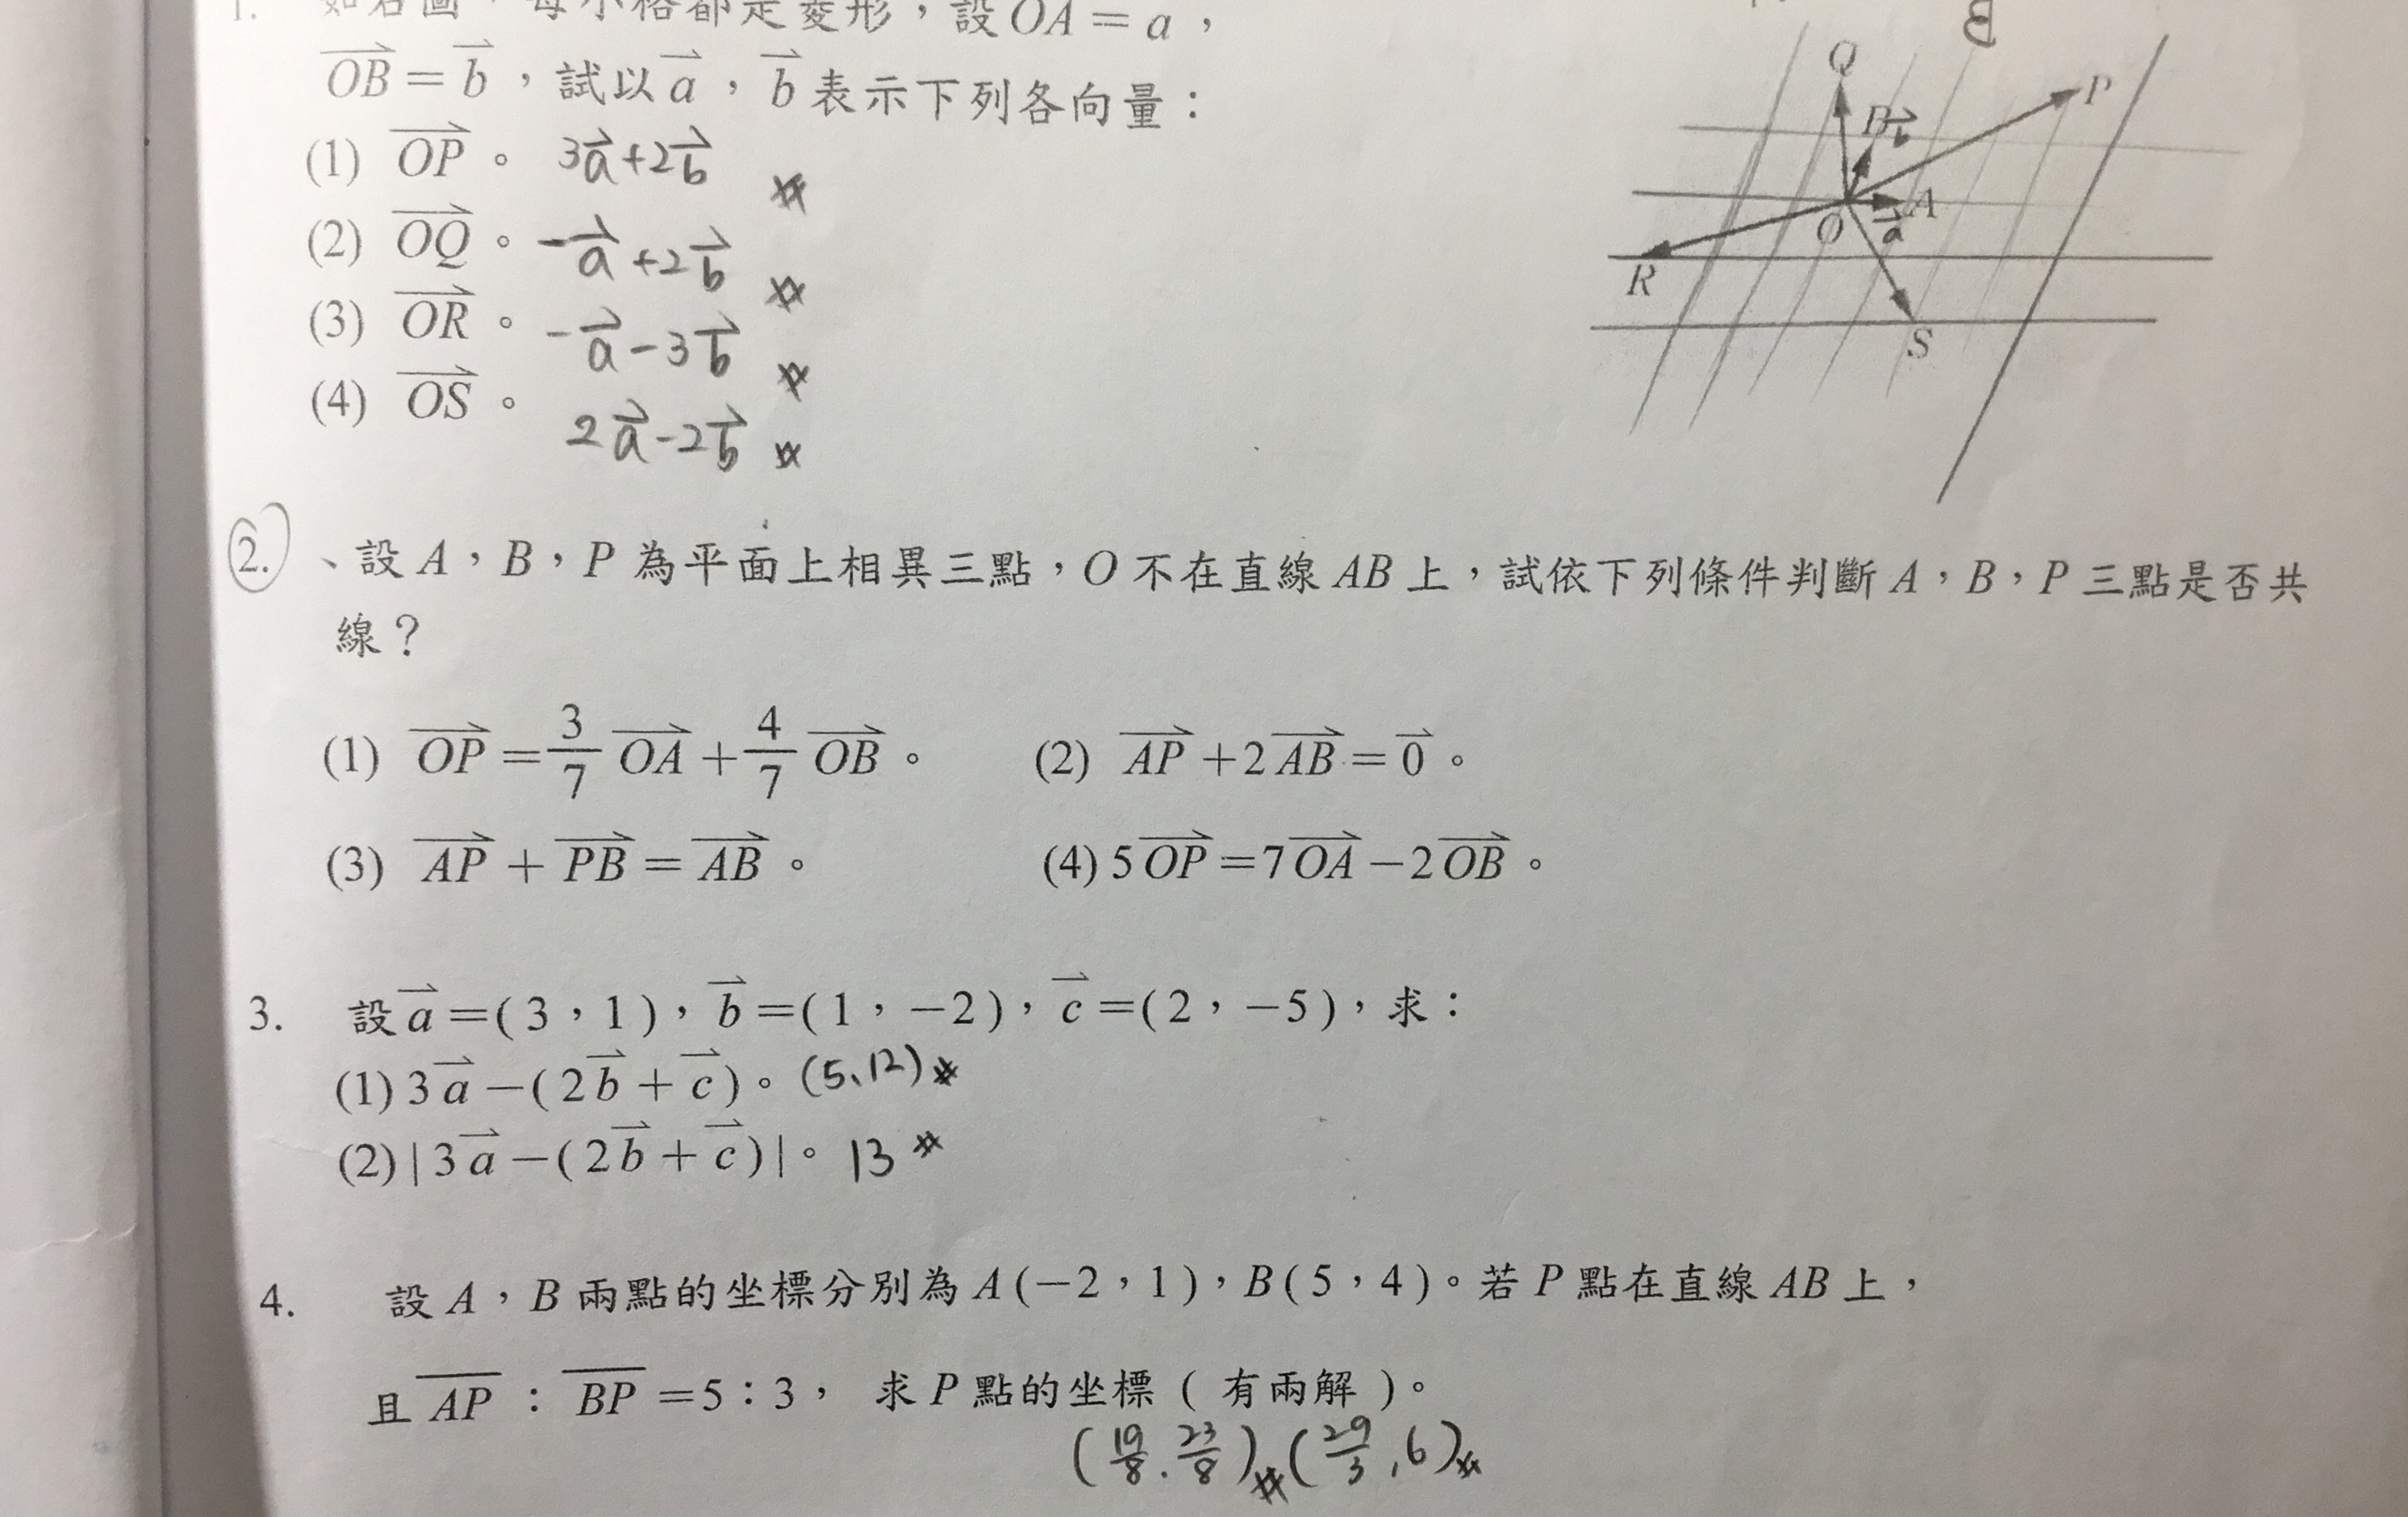 1. 如右圖,每小格都是菱形,設 OA = a,
OB = b,試以 a,b 表示下列各向量:
(1) OP。 3a+2b #
(2) OQ。 -a+2b #
(3) OR。 -a-3b #
(4) OS。 2a-2b #
B
Q
P
B b
A
O a
R
S
2. 、設 A,B,P 為平面上相異三點,O 不在直線 AB 上,試依下列條件判斷 A,B,P 三點是否共
線?
(1) OP = 3/7 OA + 4/7 OB。 (2) AP + 2AB = 0。
(3) AP + PB = AB。 (4) 5OP = 7OA - 2OB。
3. 設 a = (3,1),b = (1,-2),c = (2,-5),求:
(1) 3a - (2b + c)。 (5、12) #
(2) |3a - (2b + c)|。 13 #
4. 設 A,B 兩點的坐標分別為 A(-2,1),B(5,4)。若 P 點在直線 AB 上,
且 AP : BP = 5:3, 求 P 點的坐標 ( 有兩解 )。
(19/8 . 23/8) # (29/3 , 6) #